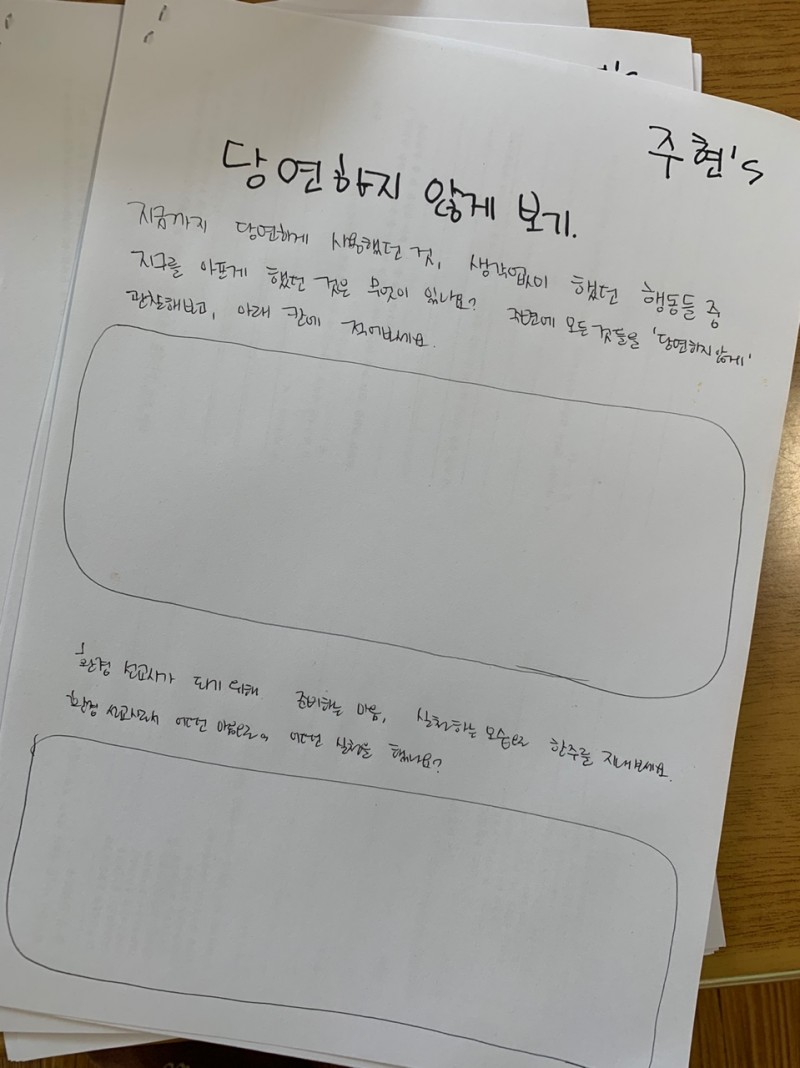 주현's
당연하지 않게 보기.
지금까지 당연하게 사용했던 것, 생각없이 했던 행동들 중
지구를 아프게 했던 것은 무엇이 있나요? 주변에 모든 것들을 '당연하지 않게'
관찰해보고, 아래 칸에 적어보세요.
환경 선교사가 되기 위해 준비하는 마음, 실천하는 모습으로 한주를 지내보세요.
환경 선교사로서 어떤 마음으로, 어떤 실천을 했나요?